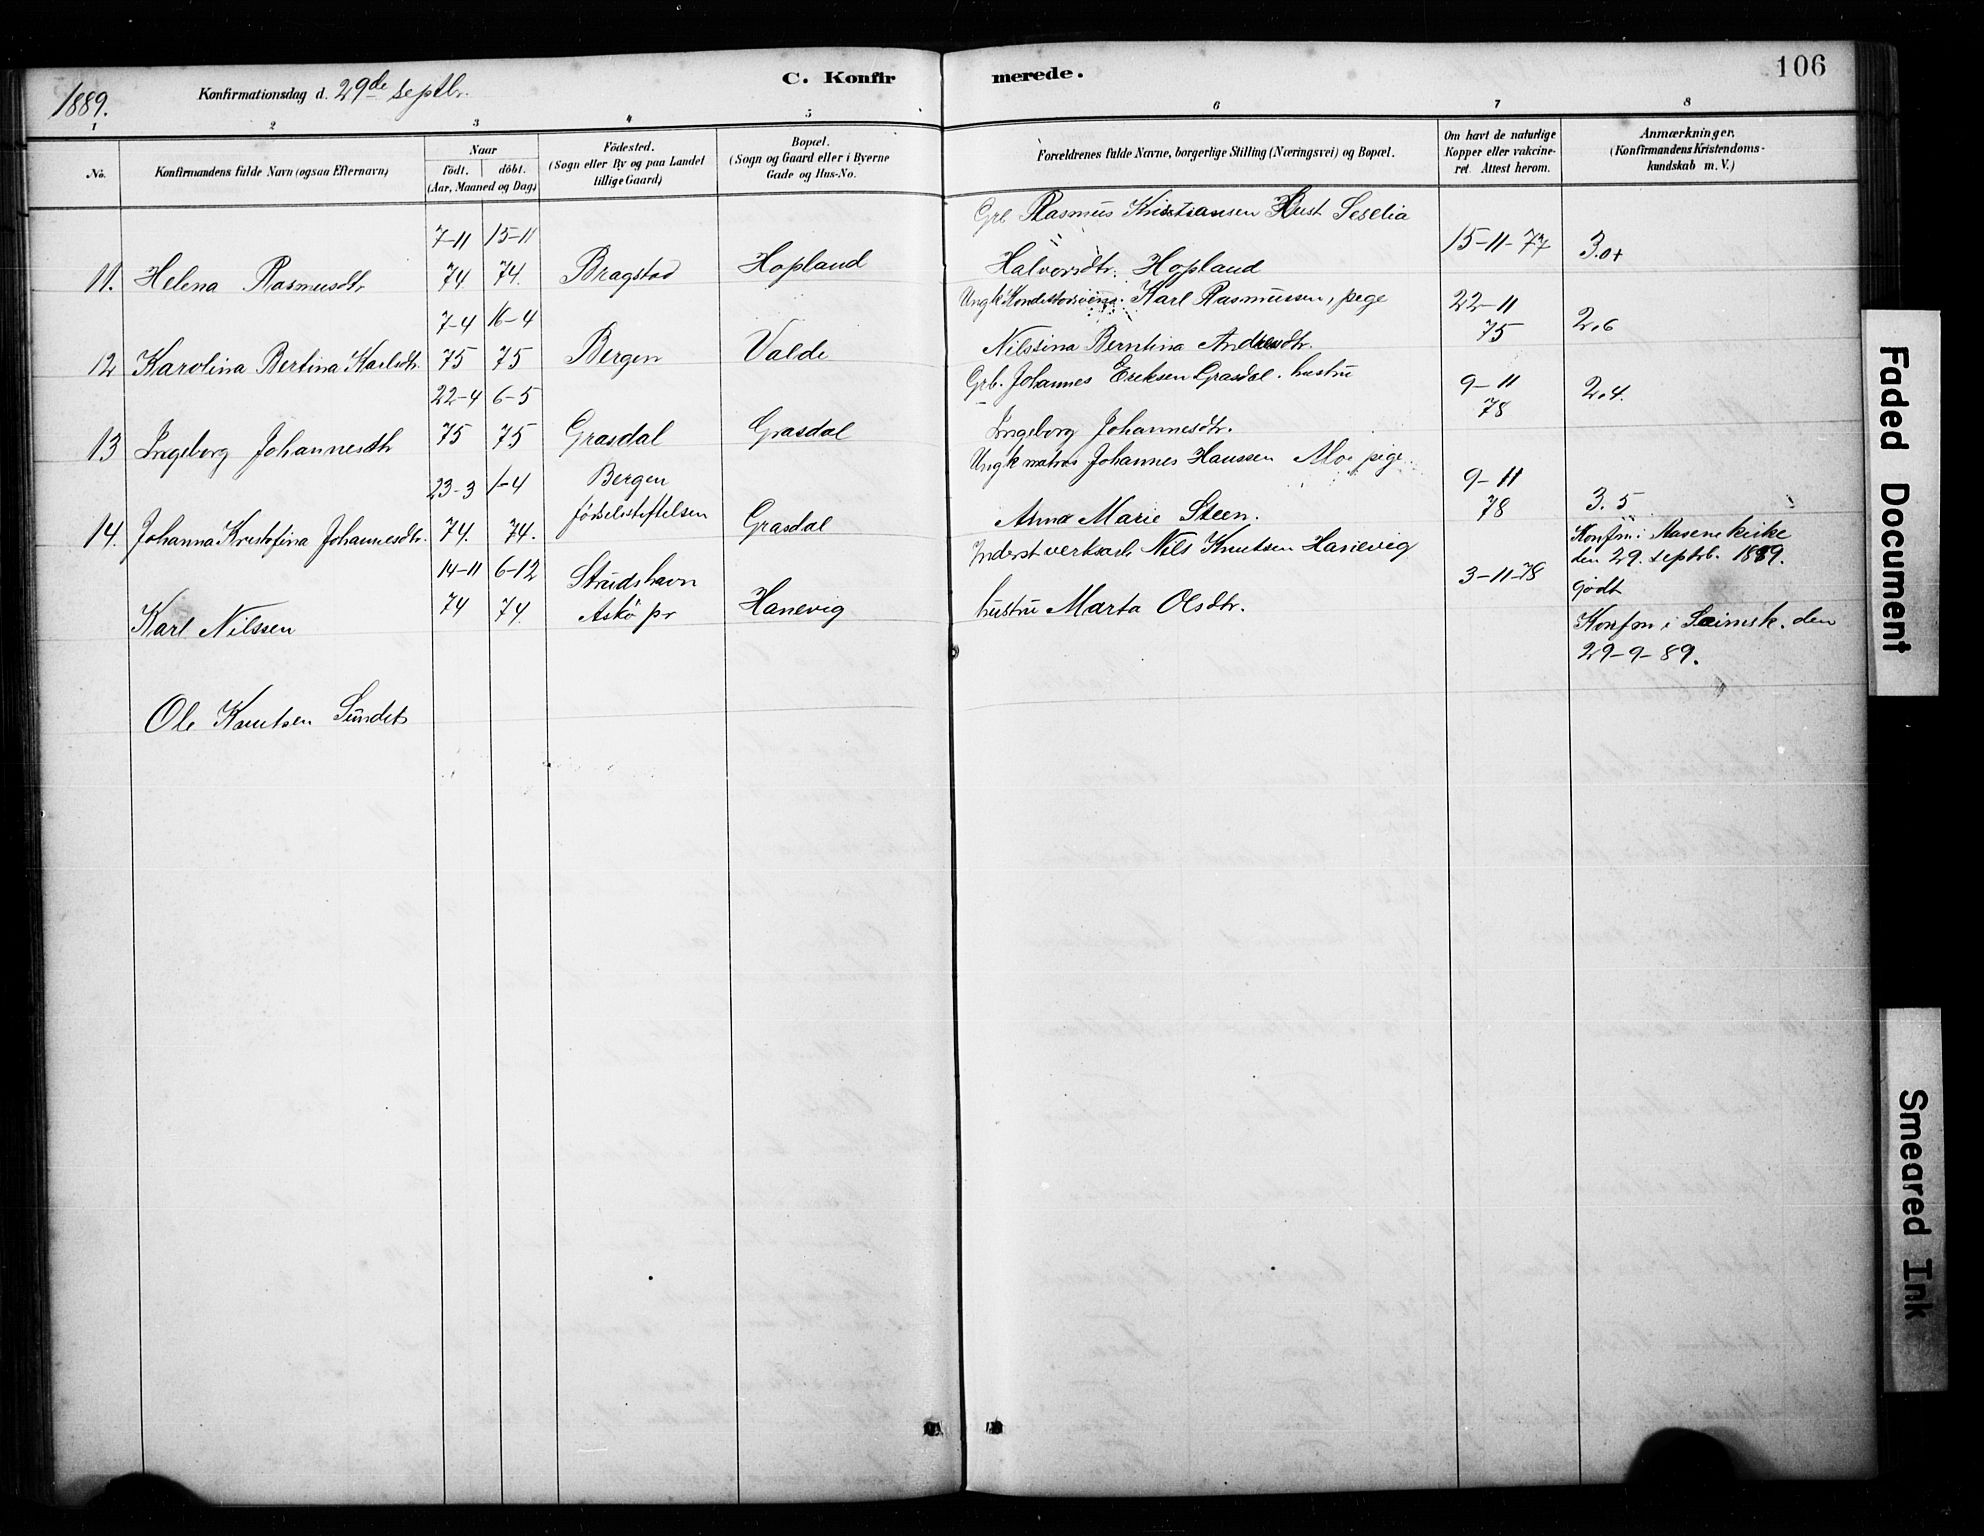 1889.
Konfirmationsdag d. 29de septbr.
C. Konfirmerede.
106
1 2 3 4 5 6 7 8
No.
Konfirmandens fulde Navn (ogsaa Efternavn)
Naar
født. døbt.
(Aar, Maaned og Dag)
Födested.
(Sogn eller By og paa Landet
tillige Gaard)
Bopæl.
(Sogn og Gaard eller i Byerne
Gade og Hus-No.
Forældrenes fulde Navne, borgerlige Stilling (Næringsvei) og Bopæl.
Om havt de naturlige
Kopper eller vakcine-
ret. Attest herom.
Anmærkninger.
(Konfirmandens Kristendoms-
kundskab m. V.)
Grb Rasmus Kristiansen Hust Seselia
7-11 15-11
11. Helena Rasmusdtr 74 74. Bragstad Hopland Halvorsdtr. Hopland 15-11-77 3.0+
7-4 16-4 Ungk Karl Rasmussen, pige 22-11
12 Karolina Bertina Karlsdtr. 75 75 Bergen Valde Nilssina Berntina Andersdtr. 75 2.6
22-4 6-5 Grb. Johannes Eriksen Grasdal. hustru 9-11 2.4.
13 Ingeborg Johannesdtr 75 75 Grasdal Grasdal Ingeborg Johannesdtr. 78
23-3 1-4 Bergen Ungk matros Johannes Hanssen Alvø pige 9-11
14. Johanna Kristofina Johannesdtr. 74. 74. fødselsstiftelsen Grasdal Anna Marie Steen. 78 3.5
14-11 6-12 Strudshavn Inderst Nils Knutsen Hanevig 3-11-78 Konfm i Aasene kirke
den 29. septbr. 1889.
Godt
Karl Nilssen 74 74. Askø pr Hanevig hustru Marta Olsdtr.
Konfm i Seimsk. den
29-9-89.
Ole Knutsen Sundet
Faded Document
Smeared Ink